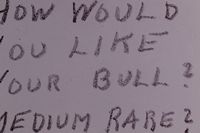 HOW WOULD
YOU LIKE
YOUR BULL?
MEDIUM RARE?